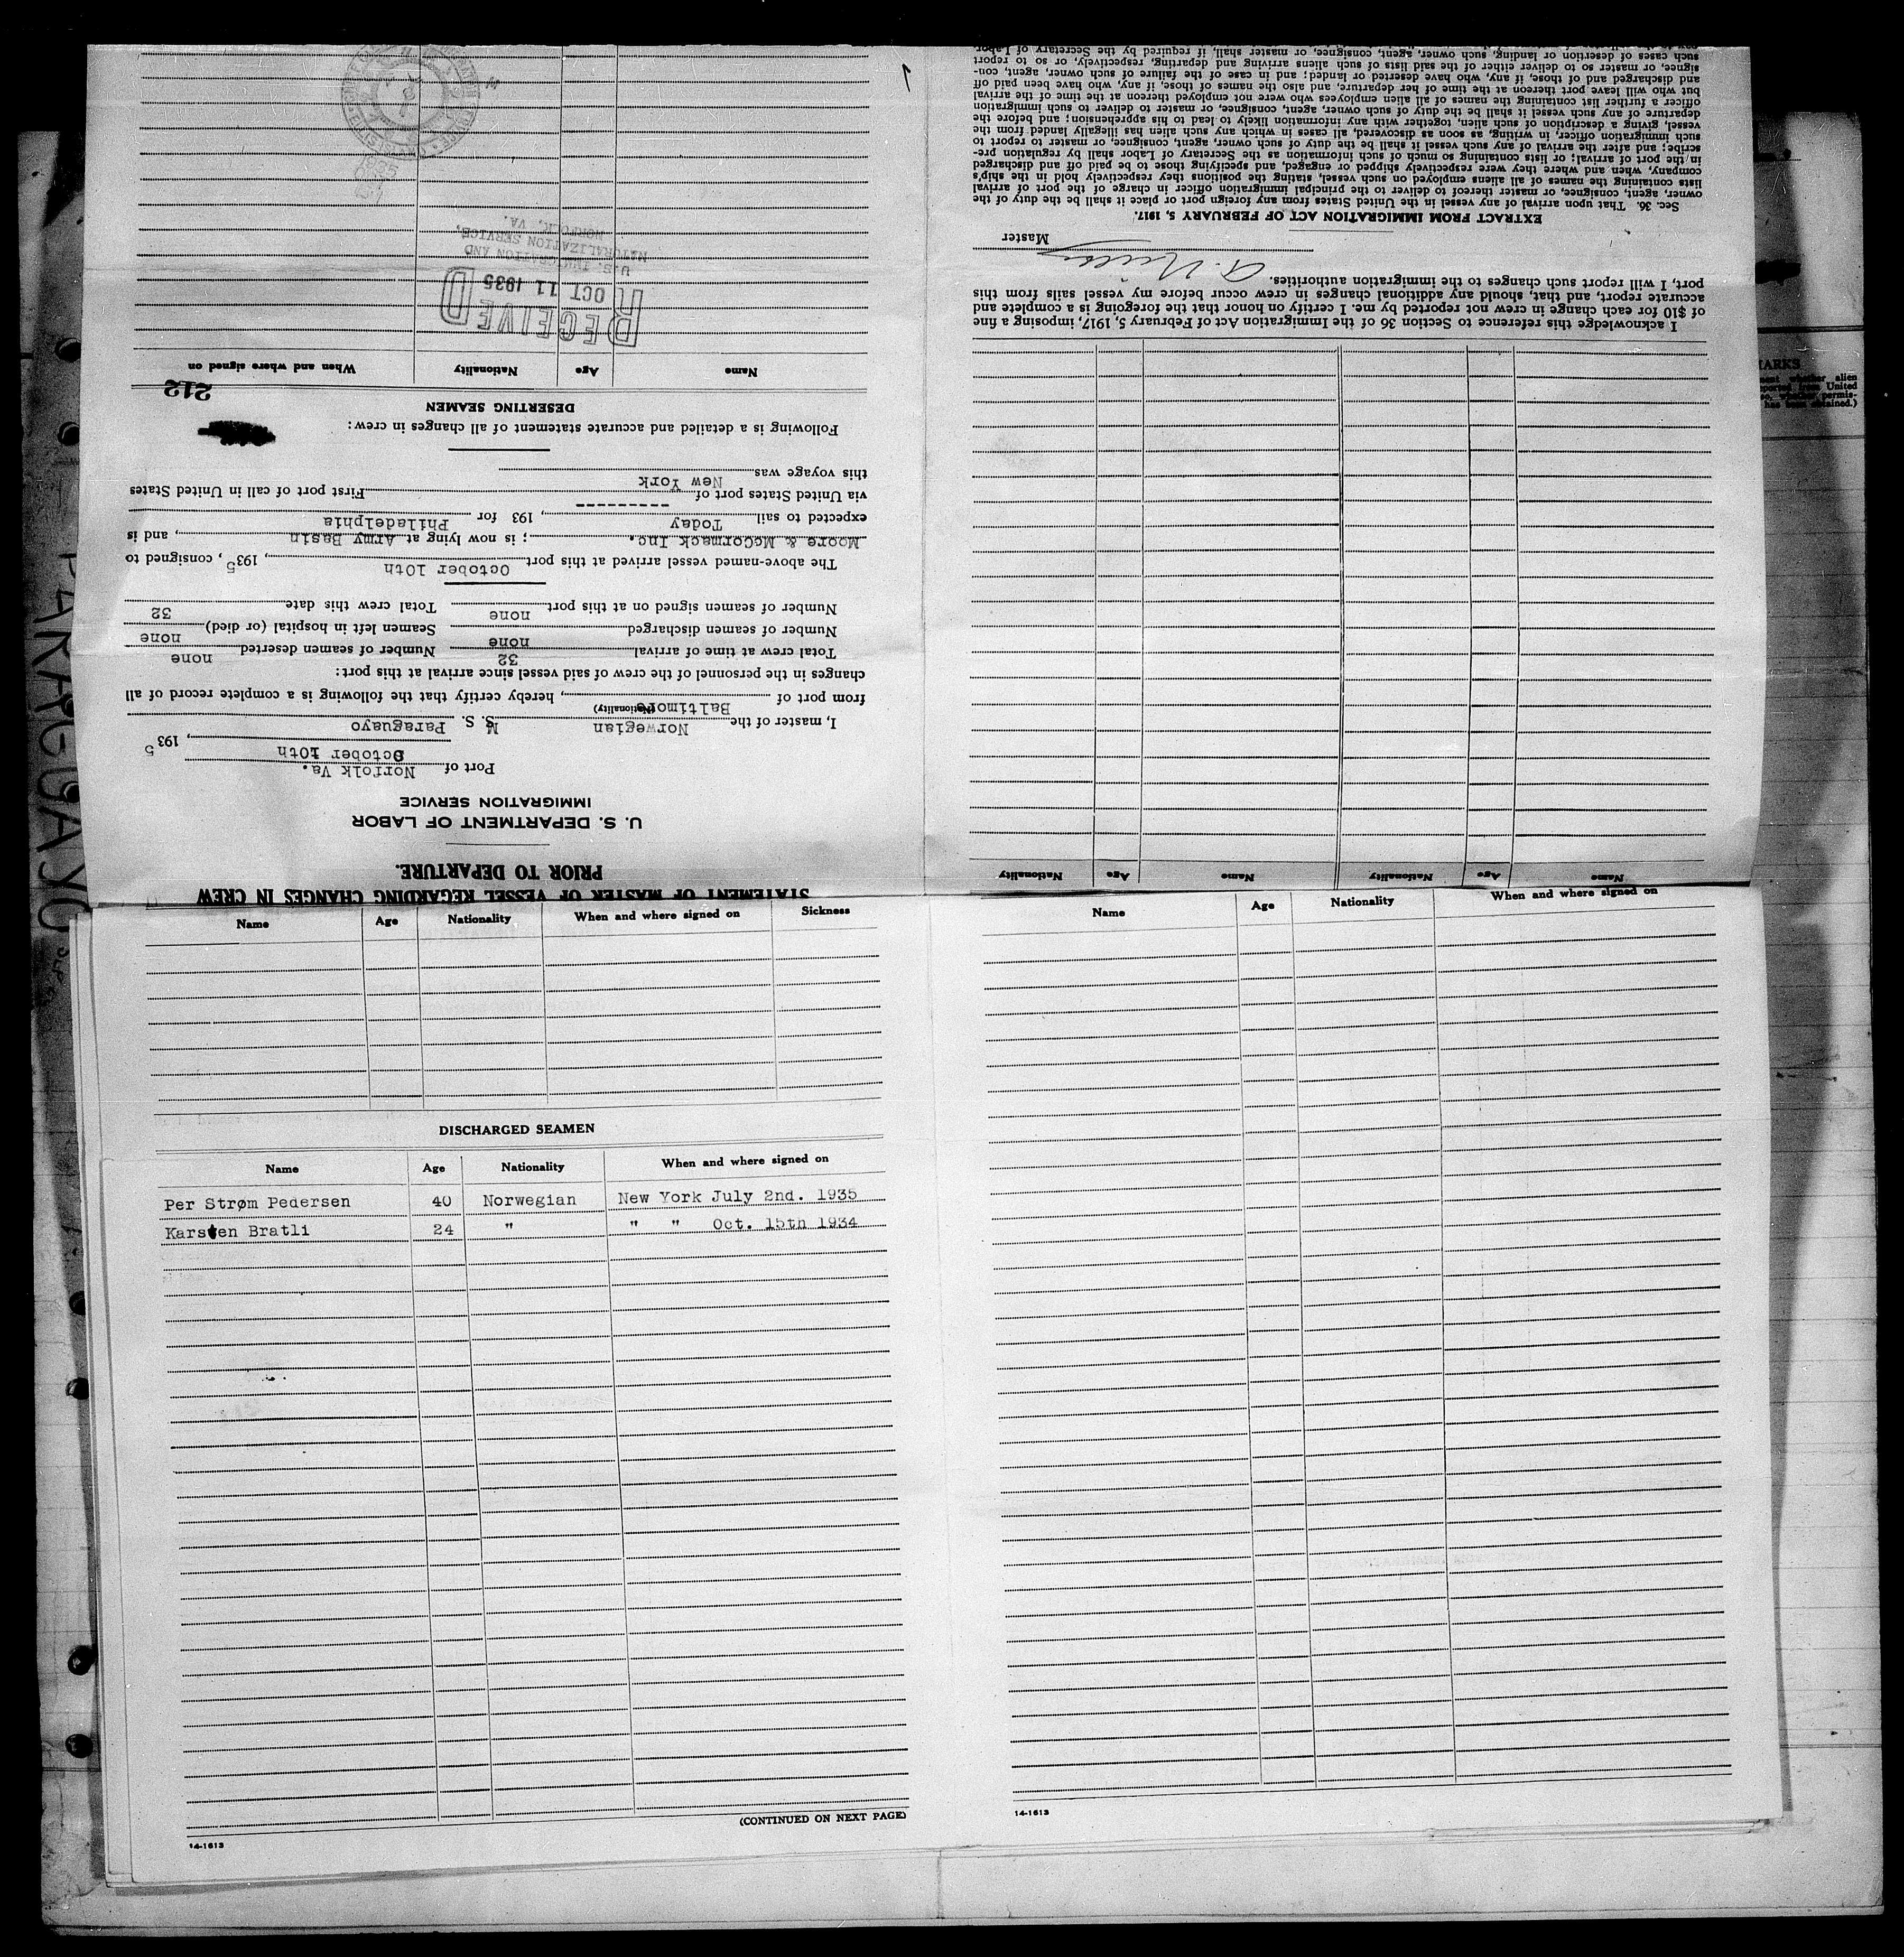 STATEMENT OF MASTER OF VESSEL REGARDING CHANGES IN CREW
PRIOR TO DEPARTURE.
U. S. DEPARTMENT OF LABOR
IMMIGRATION SERVICE
Port of Norfolk Va.
October 10th, 1935
I, master of the Norwegian M S. S. Paraguayo
(Nationality)
from port of Baltimore, hereby certify that the following is a complete record of all
changes in the personnel of the crew of said vessel since arrival at this port:
Total crew at time of arrival 32 Number of seamen deserted none
Number of seamen discharged none Seamen left in hospital (or died) none
Number of seamen signed on at this port none Total crew this date 32
The above-named vessel arrived at this port October 10th, 1935, consigned to
Moore & McCormack Inc. ; is now lying at Army Basin, and is
expected to sail Today, 193 for Philadelphia
via United States port of --------- First port of call in United States
this voyage was New York
Following is a detailed and accurate statement of all changes in crew:
DESERTING SEAMEN
212
Name Age Nationality When and where signed on
RECEIVED
OCT 11 1935
U.S. IMMIGRATION AND
NATURALIZATION SERVICE,
NORFOLK, VA.
Name Age Nationality Name Age Nationality
I acknowledge this reference to Section 36 of the Immigration Act of February 5, 1917, imposing a fine
of $10 for each change in crew not reported by me. I certify on honor that the foregoing is a complete and
accurate report, and that, should any additional changes in crew occur before my vessel sails from this
port, I will report such changes to the immigration authorities.
Master
EXTRACT FROM IMMIGRATION ACT OF FEBRUARY 5, 1917.
Sec. 36. That upon arrival of any vessel in the United States from any foreign port or place it shall be the duty of the
owner, agent, consignee, or master thereof to deliver to the principal immigration officer in charge of the port of arrival
lists containing the names of all aliens employed on such vessel, stating the positions they respectively hold in the ship's
company, when and where they were respectively shipped or engaged, and specifying those to be paid off and discharged
in the port of arrival; or lists containing so much of such information as the Secretary of Labor shall by regulation pre-
scribe; and after the arrival of any such vessel it shall be the duty of such owner, agent, consignee, or master to report to
such immigration officer, in writing, as soon as discovered, all cases in which any such alien has illegally landed from the
vessel, giving a description of such alien, together with any information likely to lead to his apprehension; and before the
departure of any such vessel it shall be the duty of such owner, agent, consignee, or master to deliver to such immigration
officer a further list containing the names of all alien employees who were not employed thereon at the time of the arrival
but who will leave port thereon at the time of her departure, and also the names of those, if any, who have been paid off
and discharged and of those, if any, who have deserted or landed; and in case of the failure of such owner, agent, con-
signee, or master so to deliver either of the said lists of such aliens arriving and departing, respectively, or so to report
such cases of desertion or landing, such owner, agent, consignee, or master shall, if required by the Secretary of Labor,
Name Age Nationality When and where signed on Sickness
DISCHARGED SEAMEN
Name Age Nationality When and where signed on
Per Strøm Pedersen 40 Norwegian New York July 2nd. 1935
Karsten Bratli 24 " " " Oct. 15th 1934
(CONTINUED ON NEXT PAGE)
14-1613
Name Age Nationality When and where signed on
14-1613
PARAGUAYO